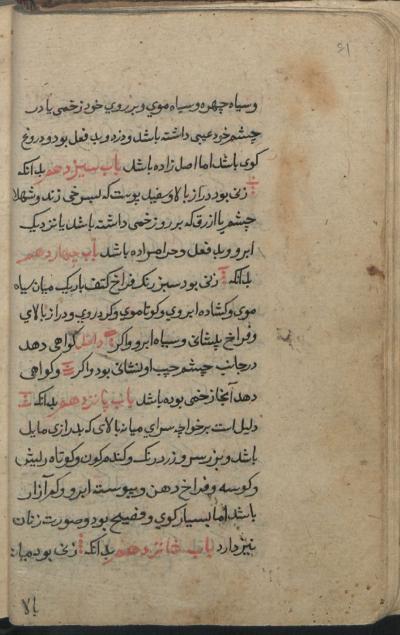 ۶۱
وسیاه چهره وسیاه موی وبر روی خود زخمی یا در
چشم خود عیبی داشته باشد ودزد وبد فعل بود ودروغ
کوی باشد اما اصل زاده باشد باب سیزدهم بدانکه
زنی بود دراز بالا وسفید پوست که بسرخی زند وشهلا
چشم یا ازرق که بر رو زخمی داشته باشد یا نزدیک
ابرو وبد فعل وحرامزاده باشد باب چهاردهم
بدانکه زنی بود سبز رنک فراخ کتف باریک میان سیاه
موی وکشاده ابروی وکوتا موی وکرد روی ودراز بالای
وفراخ پیشانی وسیاه ابرو واکر داخل کواهی دهد
در جانب چشم چپ او نشانی بود واکر وکواهی
دهد آنجا زخمی بوده باشد باب پانزدهم بدانکه
دلیل است بر خواجه سرای میانه بالای که بدرازی مایل
باشد وبزرک سر وزرد رنک وکندم کون وکوتاه ریش
وکوسه وفراخ دهن وپیوسته ابرو وکم آزار
باشد اما بسیار کوی وفصیح بود وصورت زنان
نیز دارد باب شانزدهم بدانکه زنی بود میانه
بالا